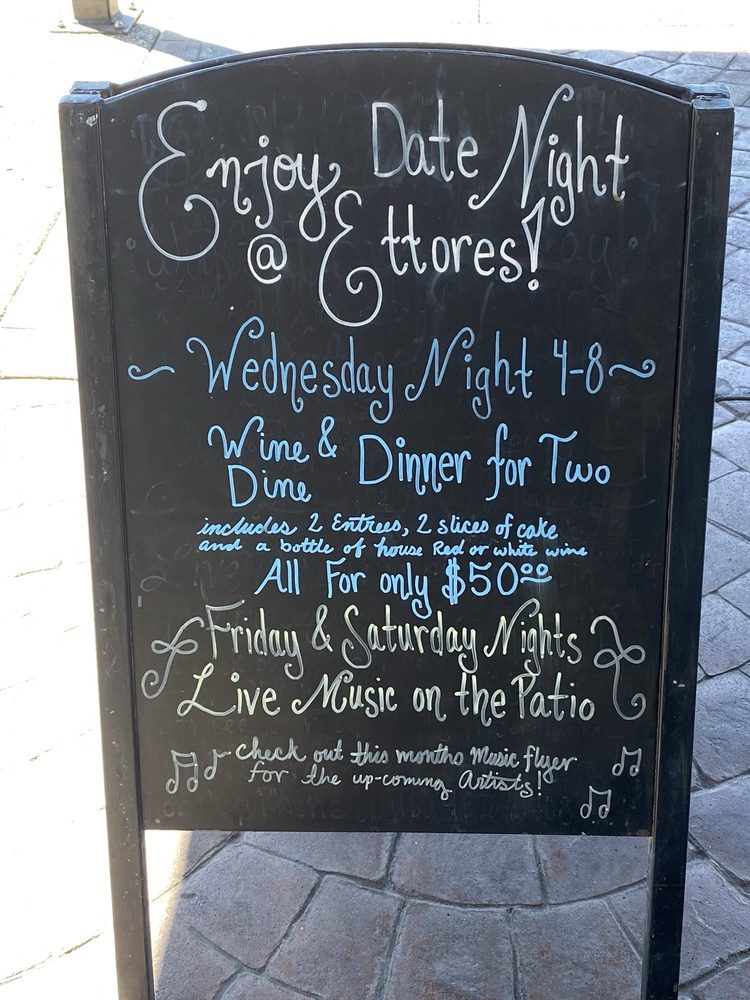 Enjoy Date Night
@ Ettores!
~ Wednesday Night 4-8 ~
Wine & Dine Dinner for Two
includes 2 Entrees, 2 slices of cake
and a bottle of house Red or white wine
All For only $50.00
Friday & Saturday Nights
Live Music on the Patio
check out this months Music flyer
for the up-coming Artists!